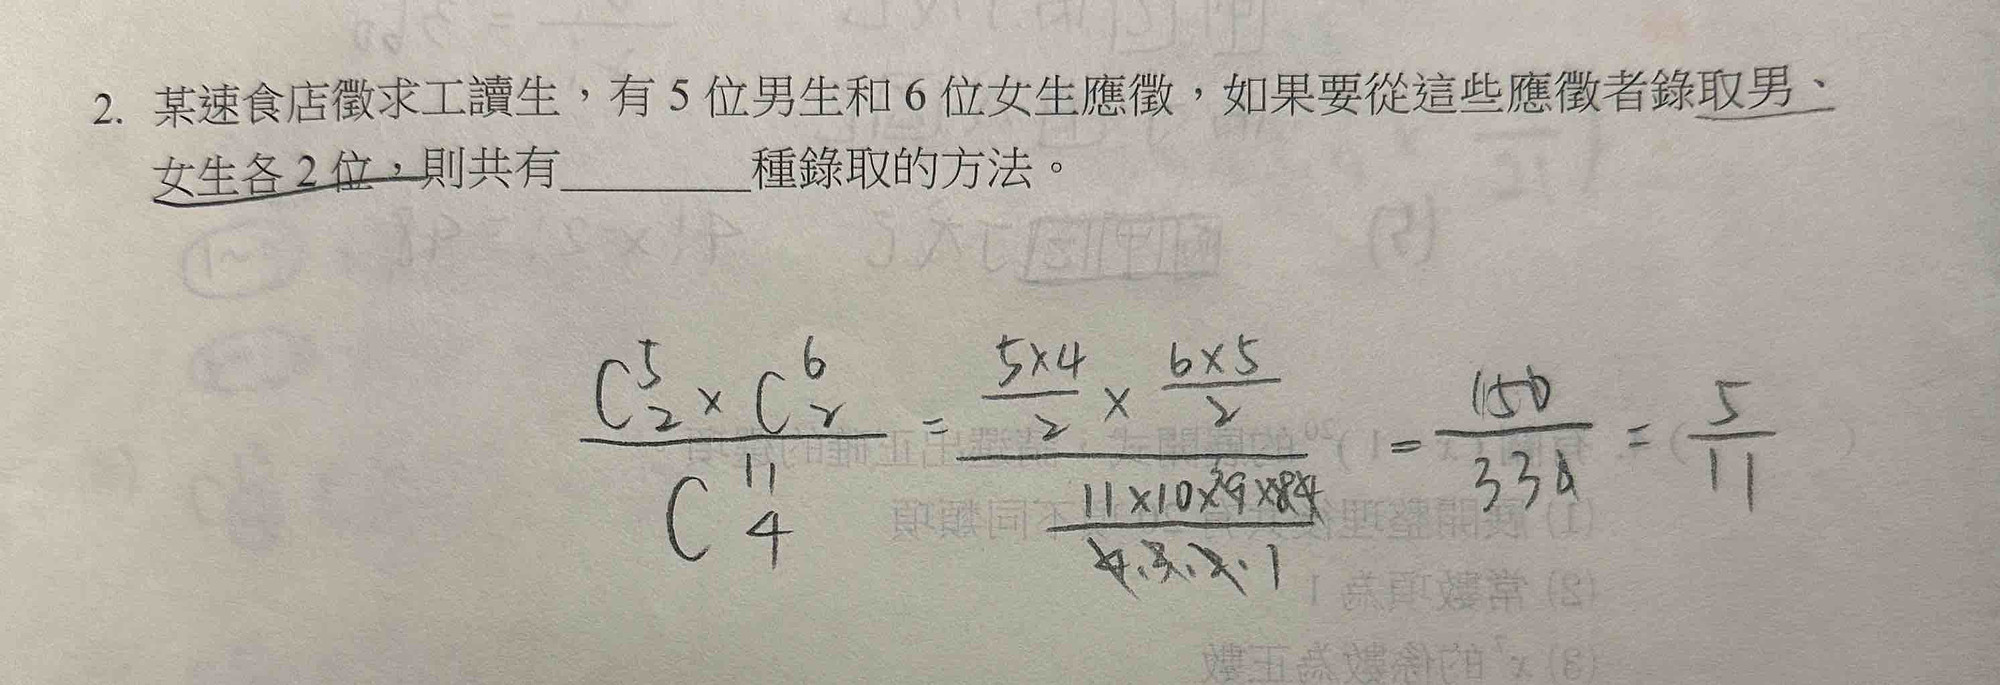 2. 某速食店徵求工讀生，有 5 位男生和 6 位女生應徵，如果要從這些應徵者錄取男、
女生各 2 位，則共有________種錄取的方法。
C⁵₂ × C⁶₂ / C¹¹₄ = (5×4/2 × 6×5/2) / (11×10×9×8/4·3·2·1) = 150/330 = 5/11